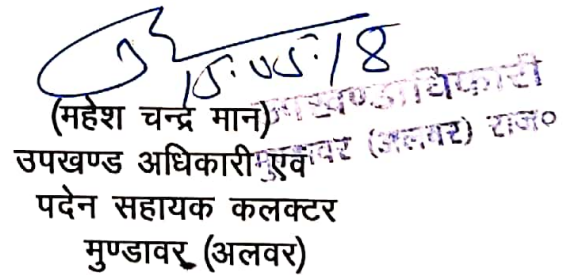 15.05.18
(महेश चन्द्र मान)
उपखण्ड अधिकारी एवं
पदेन सहायक कलक्टर
मुण्डावर (अलवर)
उपखण्ड अधिकारी
मुण्डावर (अलवर) राज०